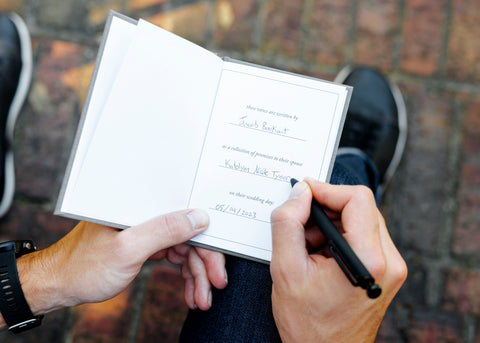 These vows are written by
Jacob
as a collection of promises to their spouse
Katelyn Nicole
on their wedding day:
05/ /2023